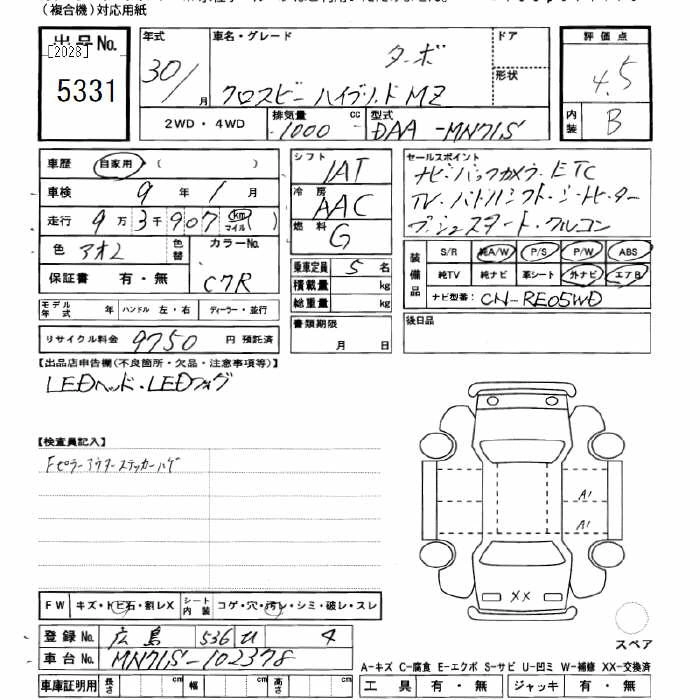 (複合機)対応用紙
出品No.
[2028]
5331
年式
30/
月
車名・グレード
ターボ
クロスビー ハイブリッド MZ
ドア
形状
評価点
4.5
内装
B
2WD・4WD
排気量
1000
cc
型式
DAA-MN71S
車歴
自家用
( )
車検
9年1月
走行
9万3千907
km
マイル
( )
色
アオ2
色替
カラーNo.
C7R
保証書
有・無
モデル年式
年
ハンドル 左・右
ディーラー・並行
リサイクル料金
9750
円 預託済
シフト
IAT
冷房
AAC
燃料
G
乗車定員
5名
積載量
kg
総重量
kg
書類期限
月 日
セールスポイント
ナビ・バックカメラ・ETC
TV・パドルシフト・シートヒーター
プッシュスタート・クルコン
装備品
S/R 純A/W P/S P/W ABS
純TV 純ナビ 革シート 外ナビ エアB
ナビ型番: CN-RE05WD
後日品
【出品店申告欄(不良箇所・欠品・注意事項等)】
LEDヘッド・LEDフォグ
【検査員記入】
Fピラーアウターステッカーハゲ
A1
A1
XX
FW
キズ・トビ石・割レX
シート内装
コゲ・穴・汚レ・シミ・破レ・スレ
登録No.
広島 536 4
車台No.
MN71S-102378
車庫証明用
長さ
cm
幅
cm
高さ
cm
スペア
A-キズ C-腐食 E-エクボ S-サビ U-凹ミ W-補修 XX-交換済
工具 有・無
ジャッキ 有・無